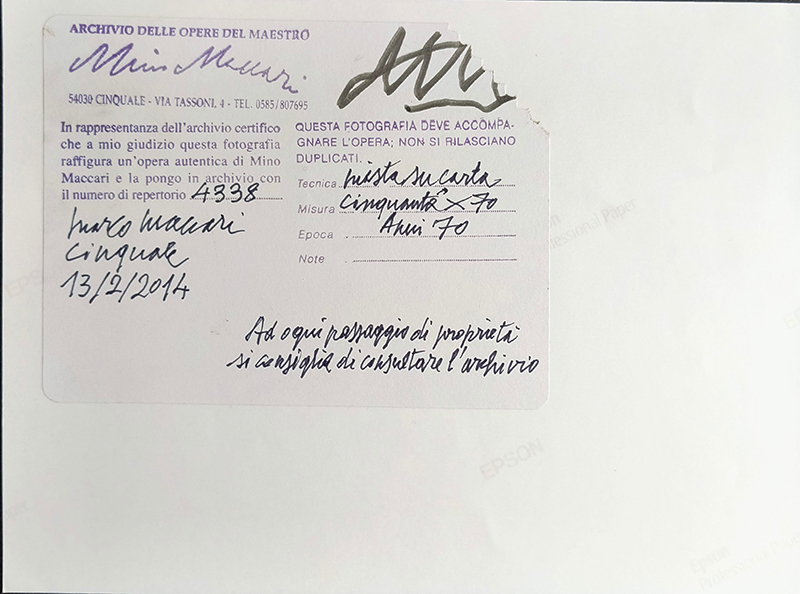 ARCHIVIO DELLE OPERE DEL MAESTRO
Mino Maccari
54030 CINQUALE - VIA TASSONI, 4 - TEL. 0585/807695
In rappresentanza dell'archivio certifico
che a mio giudizio questa fotografia
raffigura un'opera autentica di Mino
Maccari e la pongo in archivio con
il numero di repertorio 4338
Marco Maccari
Cinquale
13/2/2014
QUESTA FOTOGRAFIA DEVE ACCOMPA-
GNARE L'OPERA; NON SI RILASCIANO
DUPLICATI.
Tecnica mista su carta
Misura Cinquanta x 70
Epoca Anni 70
Note
Ad ogni passaggio di proprietà
si consiglia di consultare l'archivio
EPSON
Epson
Professional Paper